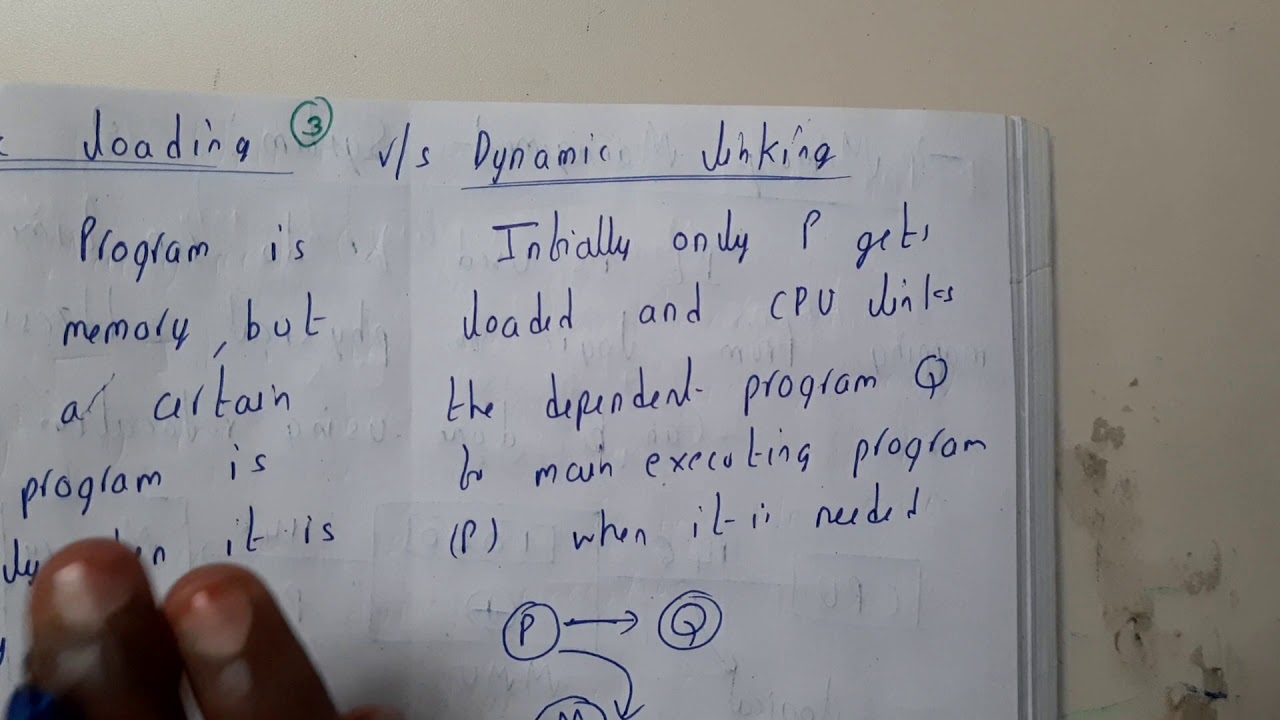 loading ③ v/s Dynamic linking
Program is
memory, but
a certain
program is
it is
Initially only P gets
loaded and CPU links
the dependent program Q
to main executing program
(P) when it is needed
P → Q
M